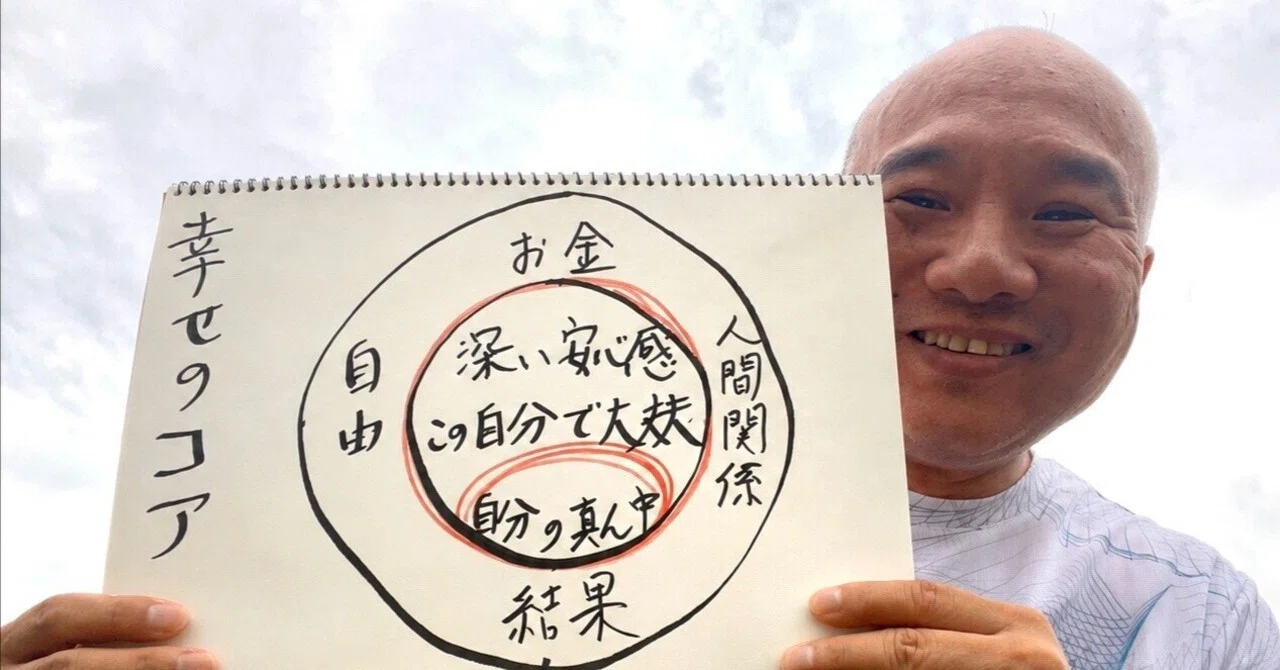 幸せのコア
お金
自由
人間関係
深い安心感
この自分で大丈夫
自分の真ん中
結果